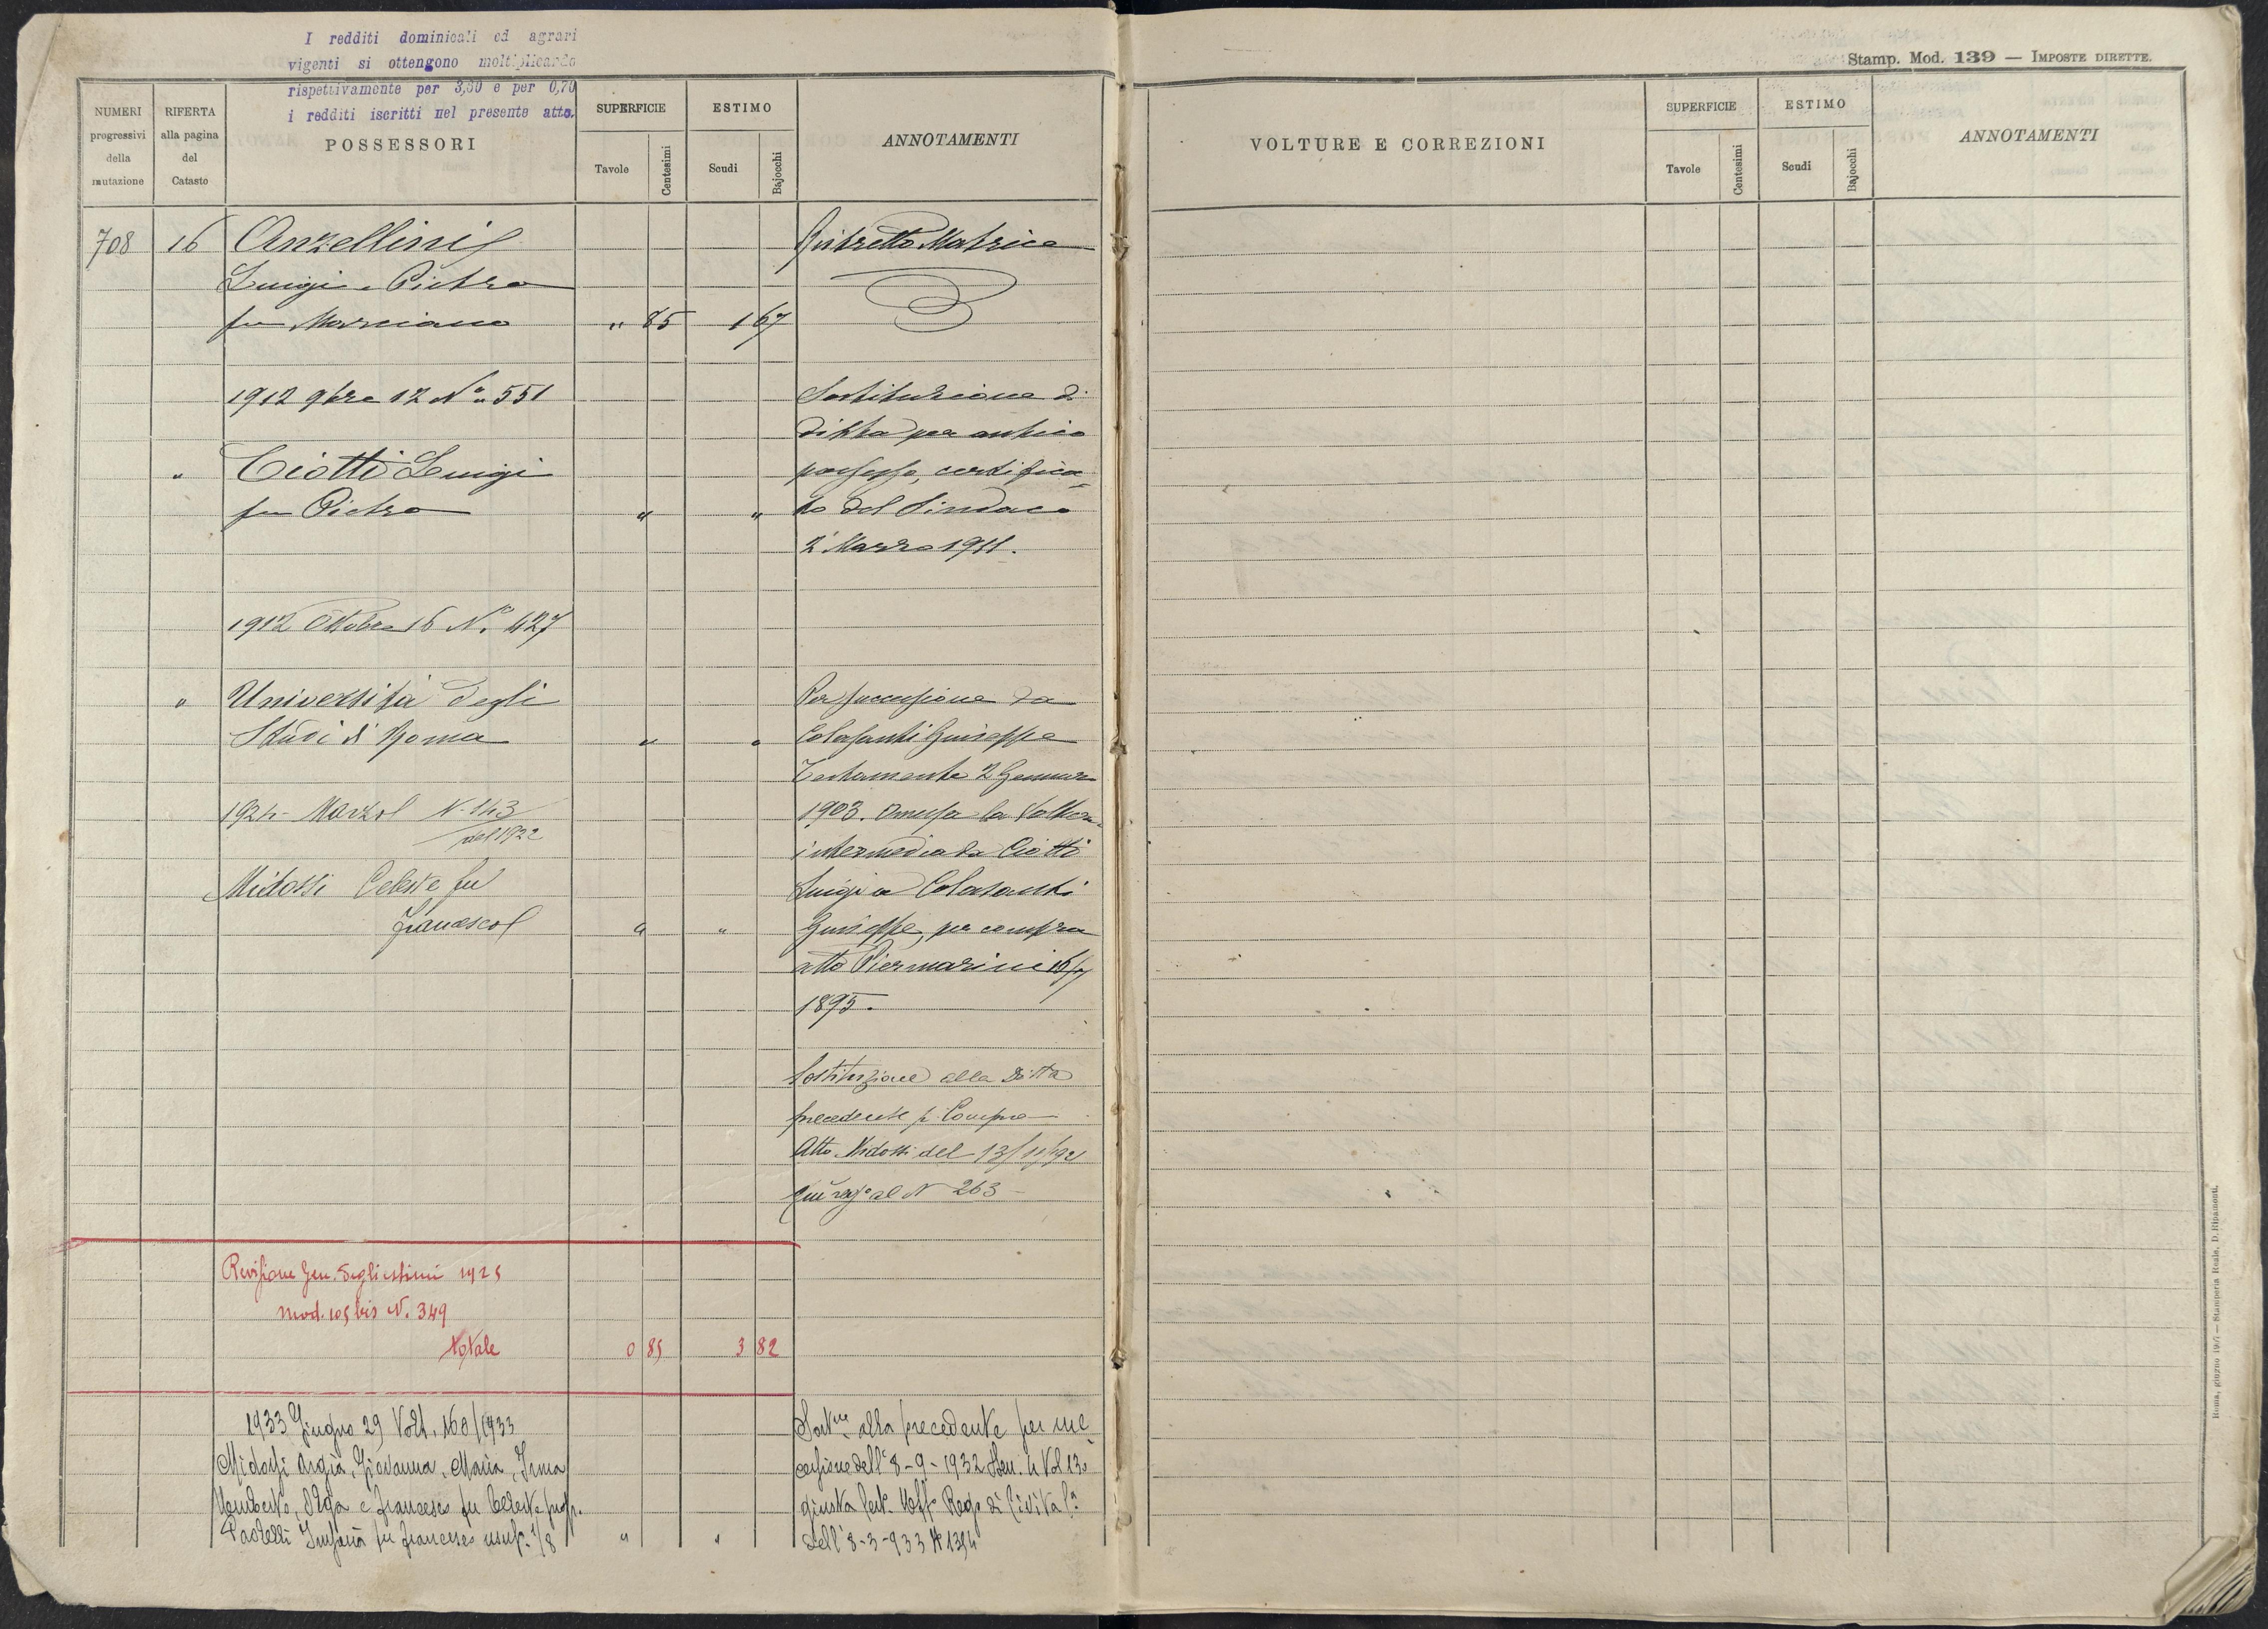 I redditi dominicali ed agrari
vigenti si ottengono moltiplicando
rispettivamente per 3,60 e per 0,70
i redditi iscritti nel presente atto.
NUMERI
progressivi
della
mutazione
RIFERTA
alla pagina
del
Catasto
POSSESSORI
SUPERFICIE
Tavole
Centesimi
ESTIMO
Scudi
Bajocchi
ANNOTAMENTI
708 16 Anzellini
Luigi e Pietro
fu Marciano " 85 1 67
Ristretto Matrice
1912 9bre 12 N° 551
" Ciotti Luigi
fu Pietro " "
Sostituzione di
ditta per antico
possesso, certifica-
to del Sindaco
2 Marzo 1911.
1912 Ottobre 16 N° 427
" Università degli
Studi di Roma " "
Per successione da
Colasanti Giuseppe
Testamento 2 Gennaio
1903. Omessa la Voltura
intermedia da Ciotti
Luigi a Colasanti
Giuseppe, per compra
atto Piermarini 16/7
1895.
1924 Marzo N. 143
del 1922
Midossi Celeste fu
Francesco " "
Sostituzione alla Ditta
precedente p. Compra
Atto Midossi del 13/11/921
al N 263
Revisione Gen. degli estimi 1925
mod. 105 bis N. 349
totale 0 85 3 82
1933 Giugno 29 Volt. 160/1933
Midossi Argia, Giovanna, Maria, Irma
Umberto, Olga e Francesco fu Celeste prop.
fu Francesco usuf. 1/8 " "
alla precedente per suc
cessione dell' 8-9-1932 Den. 4 Vol 130
giusta Uff° Reg° di Civita
dell' 8-3-933
Stamp. Mod. 139 — IMPOSTE DIRETTE.
VOLTURE E CORREZIONI
SUPERFICIE
Tavole
Centesimi
ESTIMO
Scudi
Bajocchi
ANNOTAMENTI